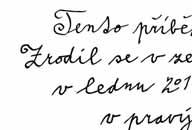 Tento příbě
Zrodil se v ze
v lednu 201
v pravý